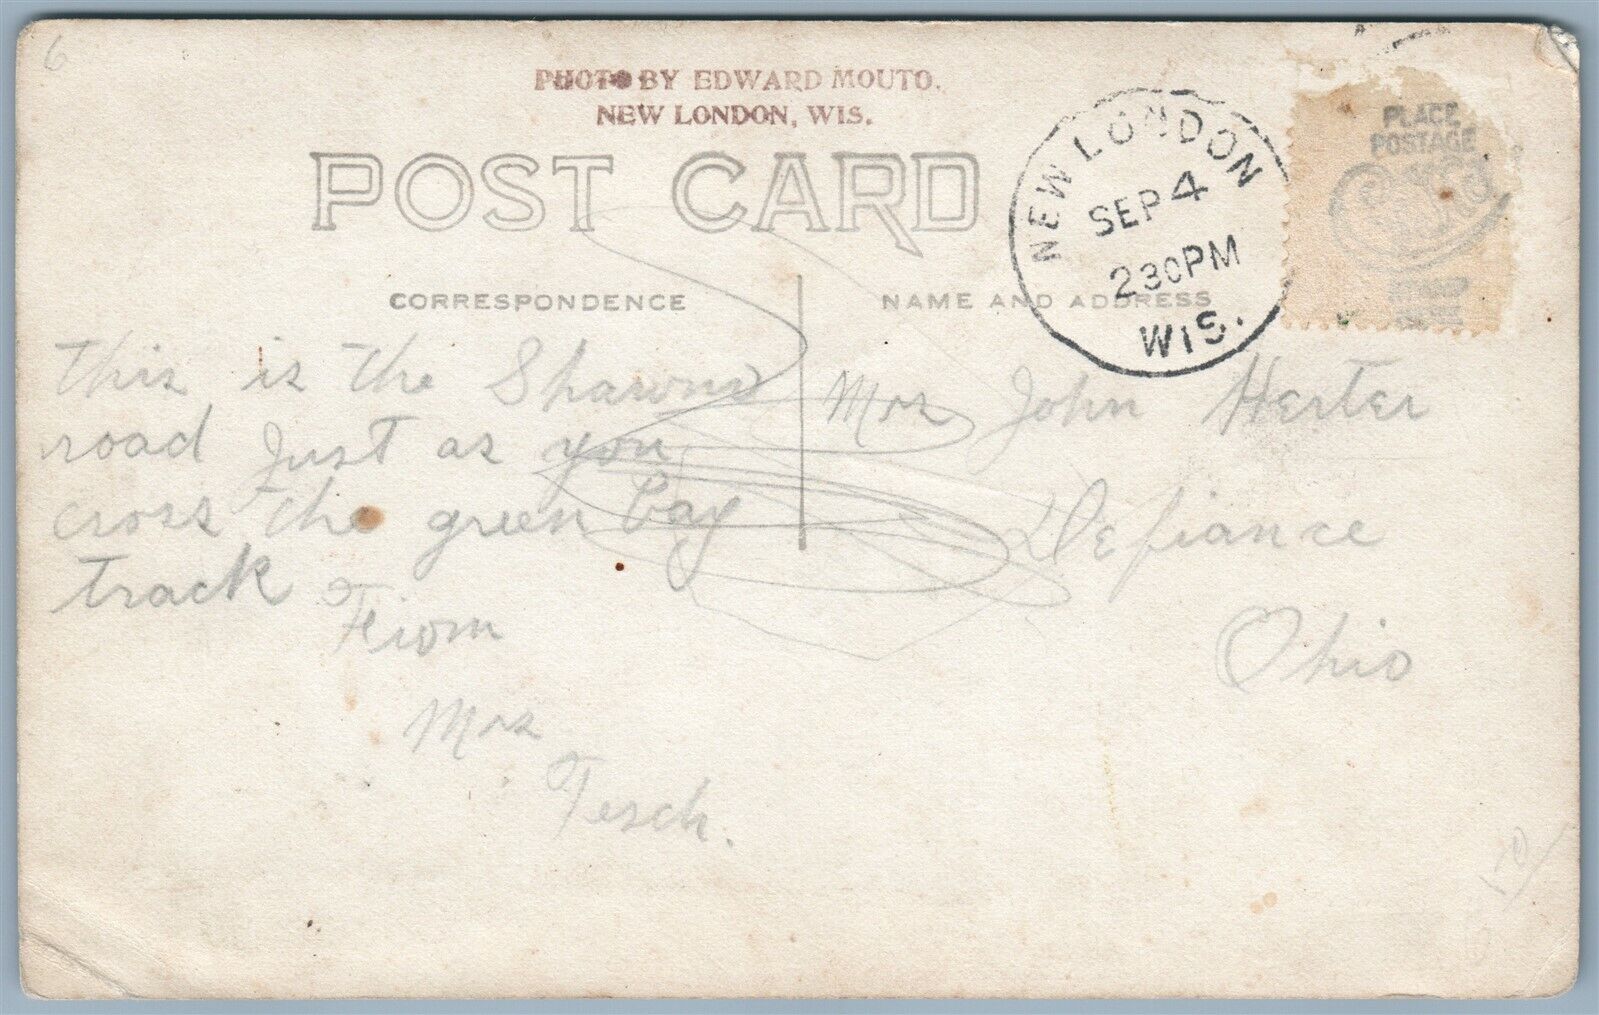 6
PHOTO BY EDWARD MOUTO.
NEW LONDON, WIS.
POST CARD
NEW LONDON
SEP 4
230PM
WIS.
PLACE
POSTAGE
CORRESPONDENCE
NAME AND ADDRESS
This is the Shawno
road Just as you
cross the green bay
track
From
Mrs
Tesch.
Mrs John Herter
Defiance
Ohio